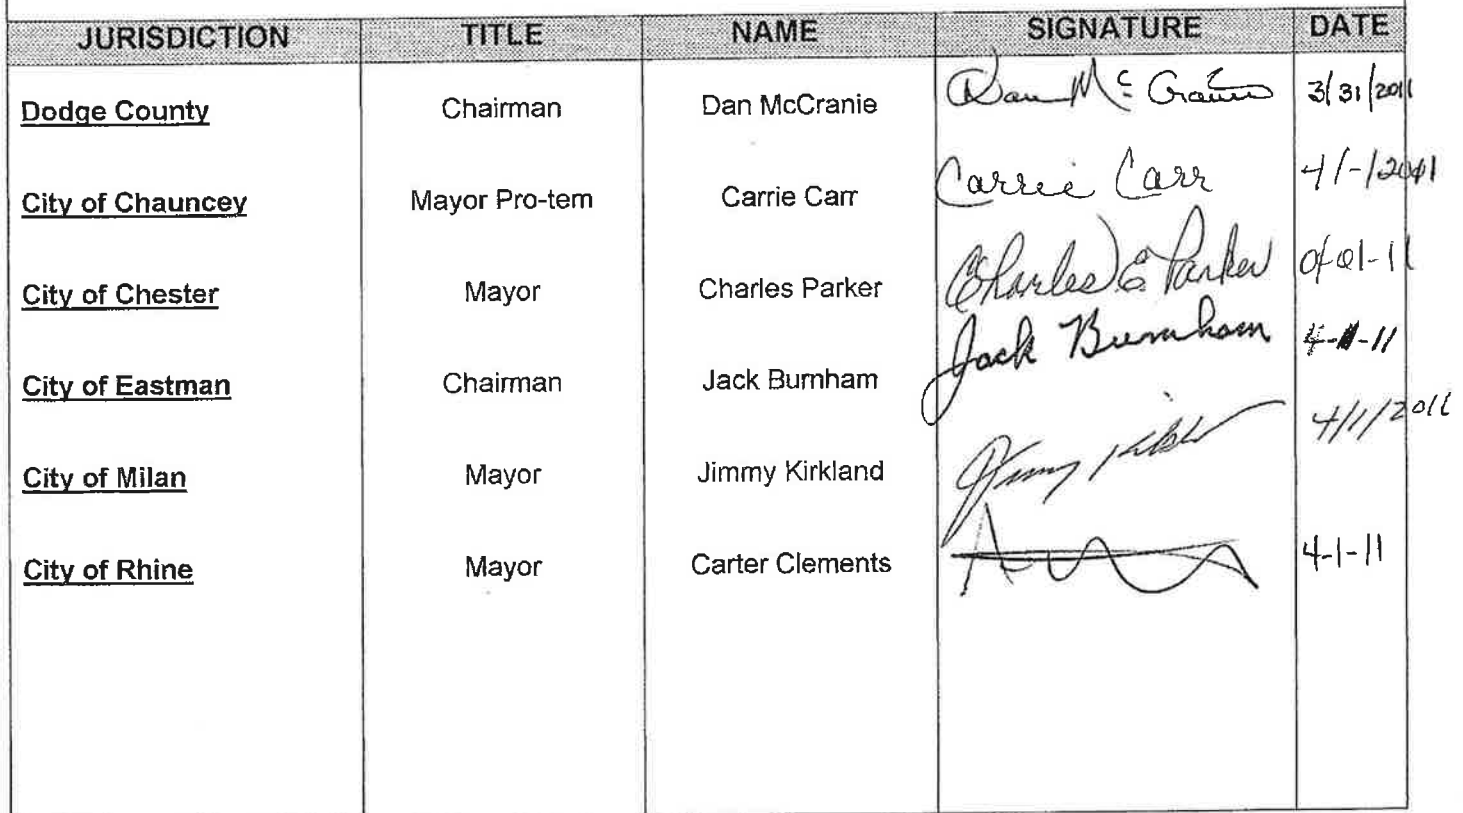 JURISDICTION TITLE NAME SIGNATURE DATE
Dodge County Chairman Dan McCranie Dan McCranie 3/31/2011
City of Chauncey Mayor Pro-tem Carrie Carr Carrie Carr 4/-/2011
City of Chester Mayor Charles Parker Charles E Parker 04-01-11
City of Eastman Chairman Jack Burnham Jack Burnham 4-1-11
City of Milan Mayor Jimmy Kirkland 4/1/2011
City of Rhine Mayor Carter Clements 4-1-11